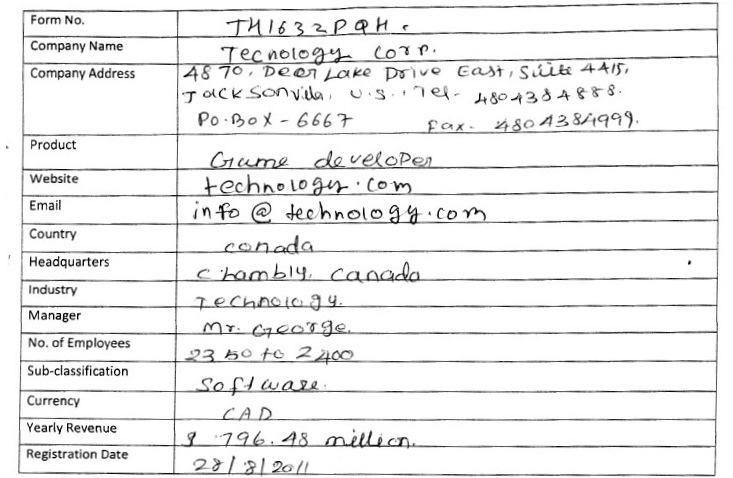 Form No. TH1632PQH.
Company Name Tecnology Corp.
Company Address 4870, Deer Lake Drive East, Suite 4415,
Jacksonvilla, U.S., Tel- 4804384888.
Po.Box - 6667 Fax. 4804384999.
Product Game developer
Website technology.com
Email info@technology.com
Country conada
Headquarters Chambly, Canada
Industry Technology.
Manager Mr. George.
No. of Employees 2350 to 2400
Sub-classification Software.
Currency CAD
Yearly Revenue 796.48 million.
Registration Date 28/8/2011